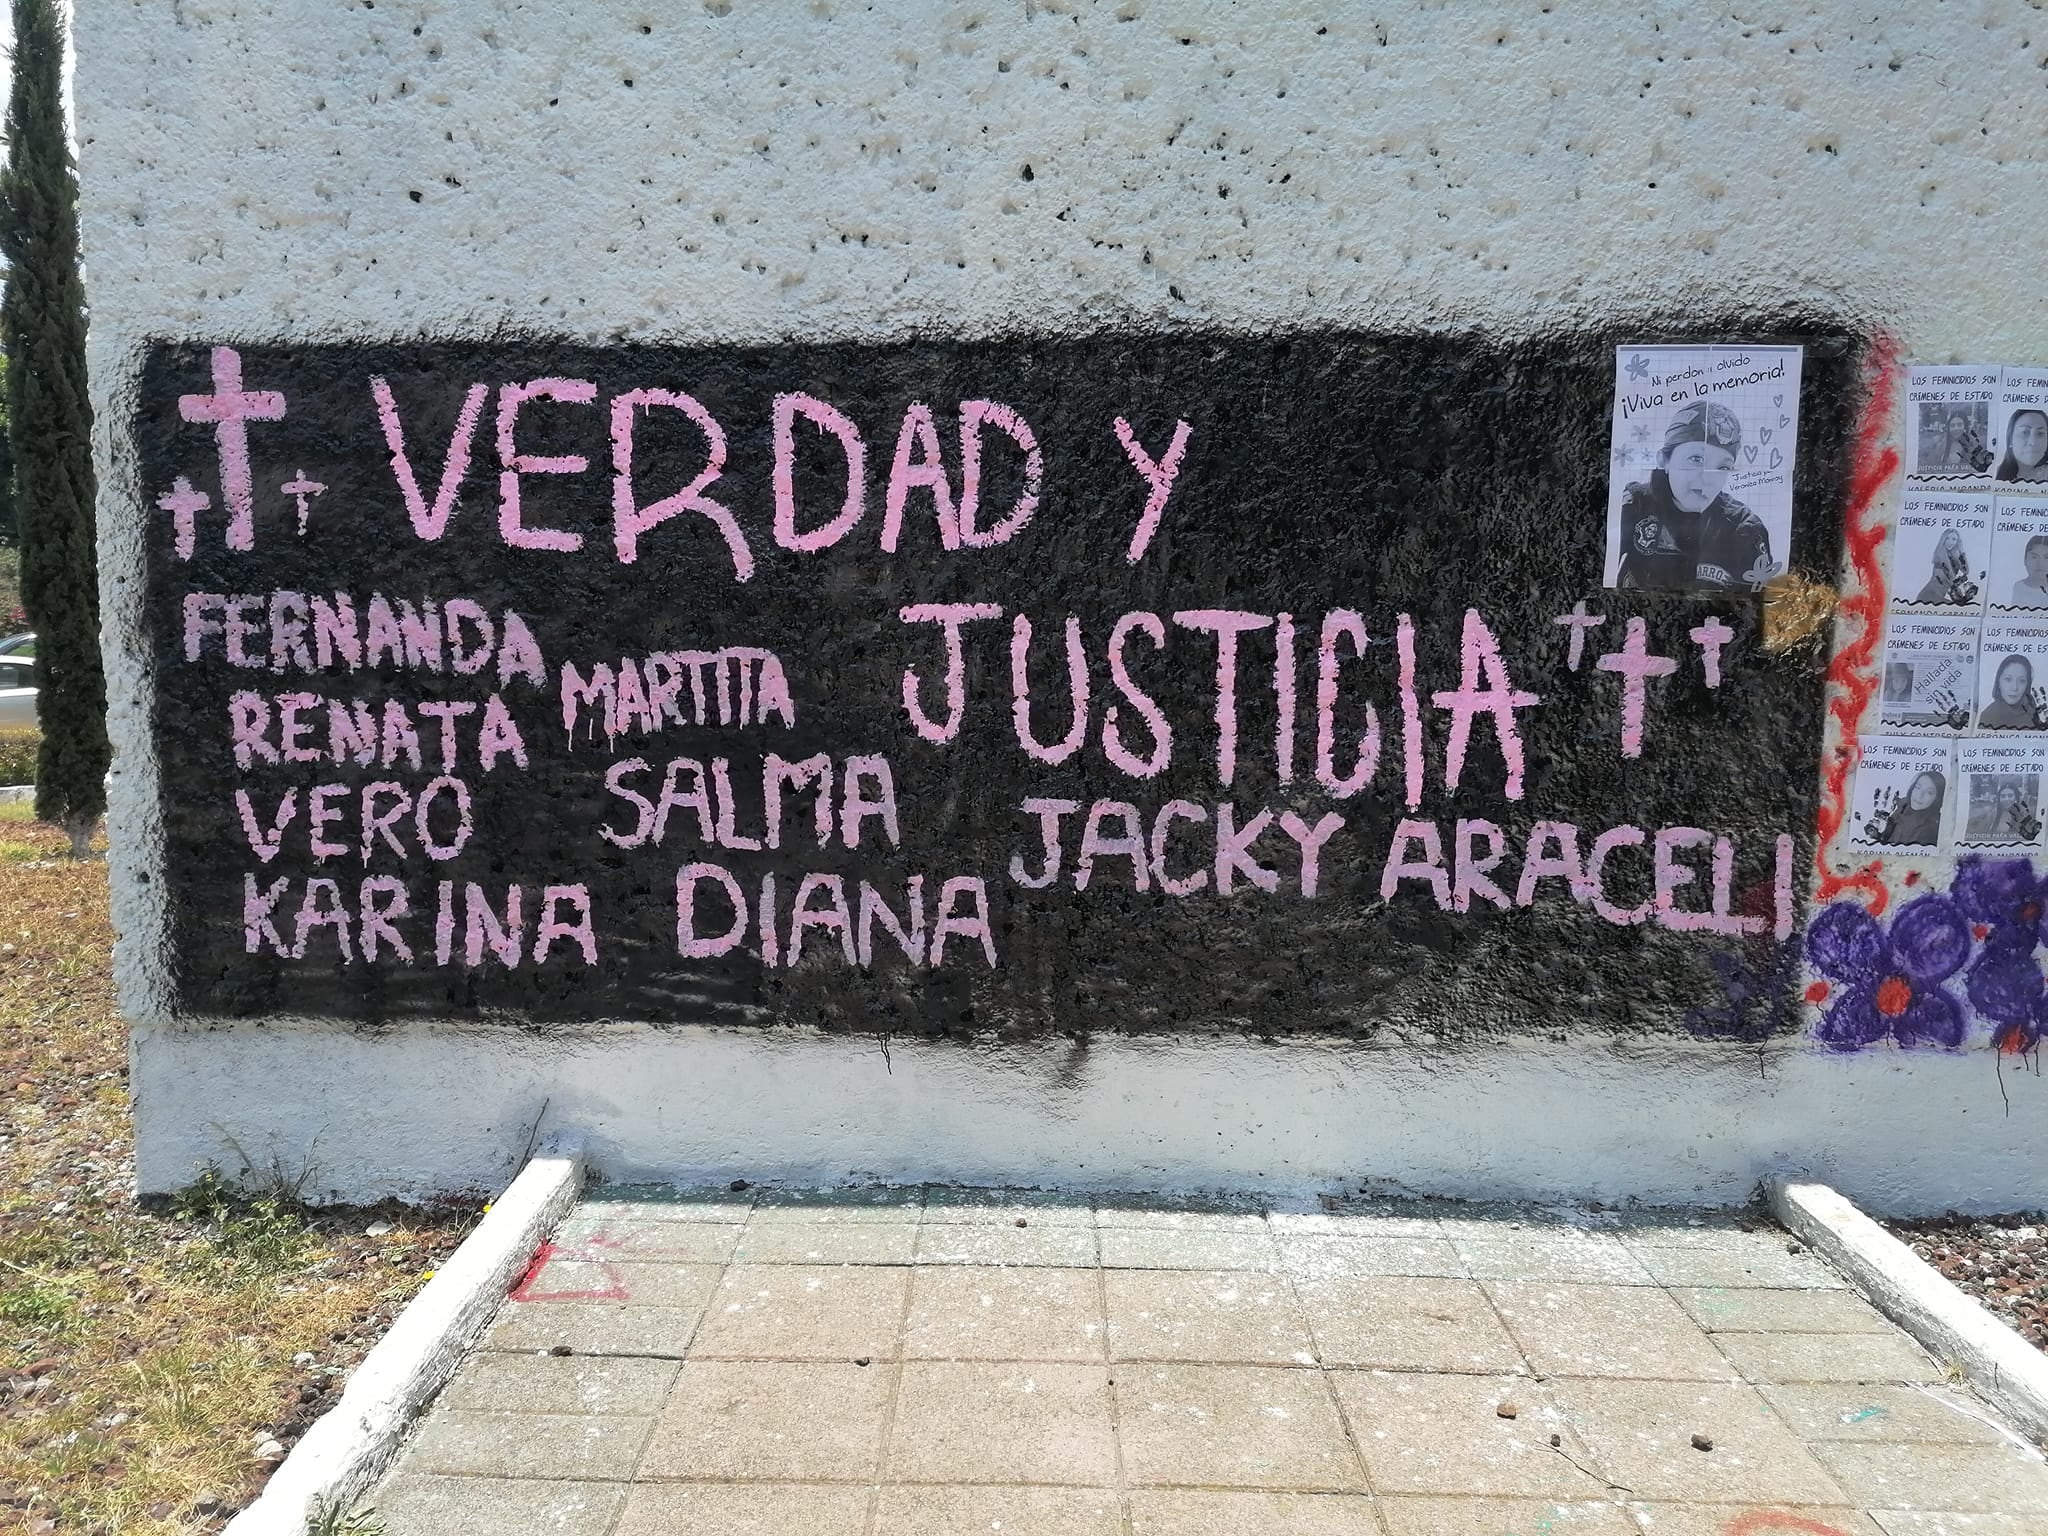 VERDAD Y
JUSTICIA
FERNANDA
MARTITA
RENATA
VERO
SALMA
JACKY ARACELI
KARINA DIANA
Ni perdon ni olvido
¡Viva en la memoria!
Justicia por
Verónica Monroy
ARRO
LOS FEMINICIDIOS SON
CRÍMENES DE ESTADO
JUSTICIA PARA VAL
VALERIA MIRANDA
LOS FEMIN
CRÍMENES DE
KARINA
LOS FEMINICIDIOS SON
CRÍMENES DE ESTADO
LOS FEMINIC
CRÍMENES DE
LOS FEMINICIDIOS SON
CRÍMENES DE ESTADO
Hallada
sin vida
LOS FEMINICIDIOS
CRÍMENES DE EST
VERÓNICA MON
LOS FEMINICIDIOS SON
CRÍMENES DE ESTADO
KARINA ALEMÁN
LOS FEMINICIDIOS SON
CRÍMENES DE ESTADO
JUSTICIA PARA VAL
VALERIA MIRANDA